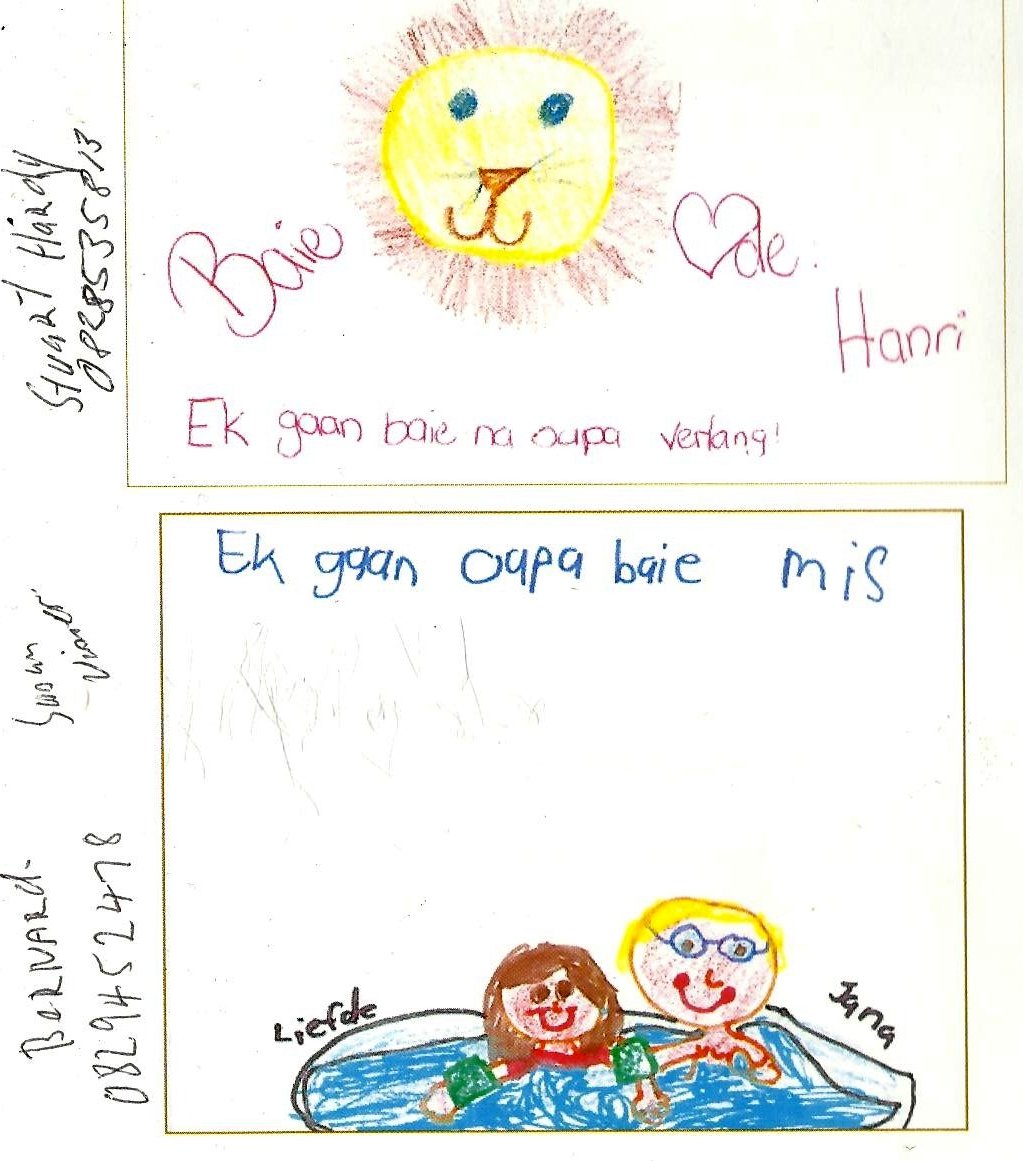 Baie
♡de.
Hanri
Ek gaan baie na oupa verlang!
Ek gaan oupa baie mis
Liefde
Jana
Stuart Hardy
0828535813
BERNARd-
0829452478